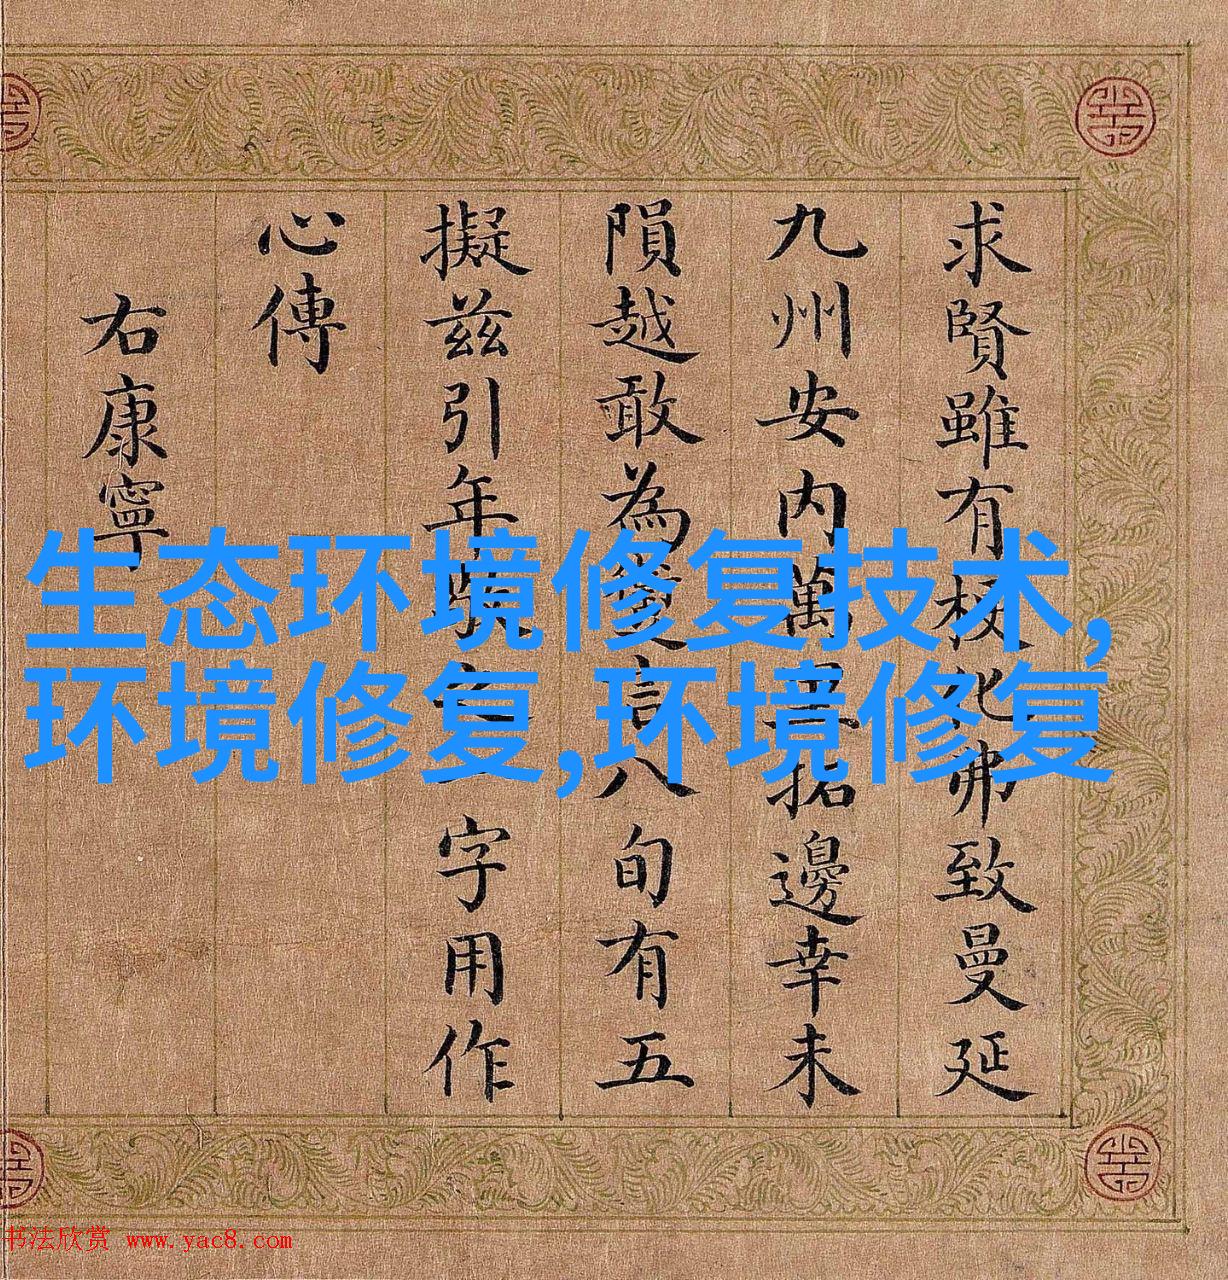 求賢雖有化弗致曼延
九州安内萬拓邊幸未
隕越敢為言八旬有五
擬兹引年字用作
心傳
右康寧
生态环境修复技术,
环境修复,环境修复
书法欣赏 www.yac8.com